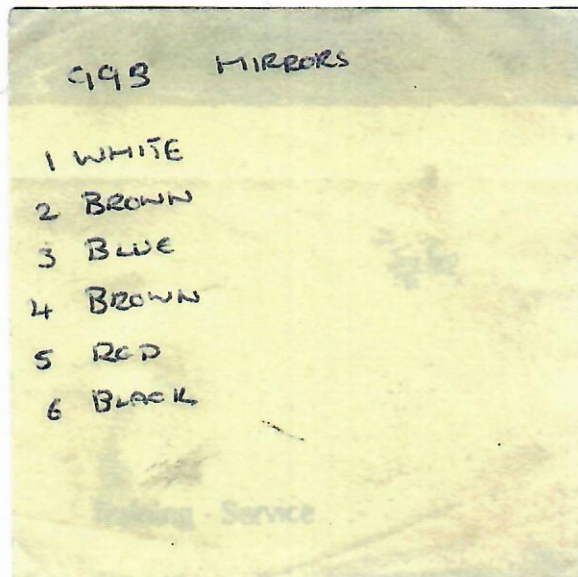 993 MIRRORS
1 WHITE
2 BROWN
3 BLUE
4 BROWN
5 RED
6 BLACK
Training - Service